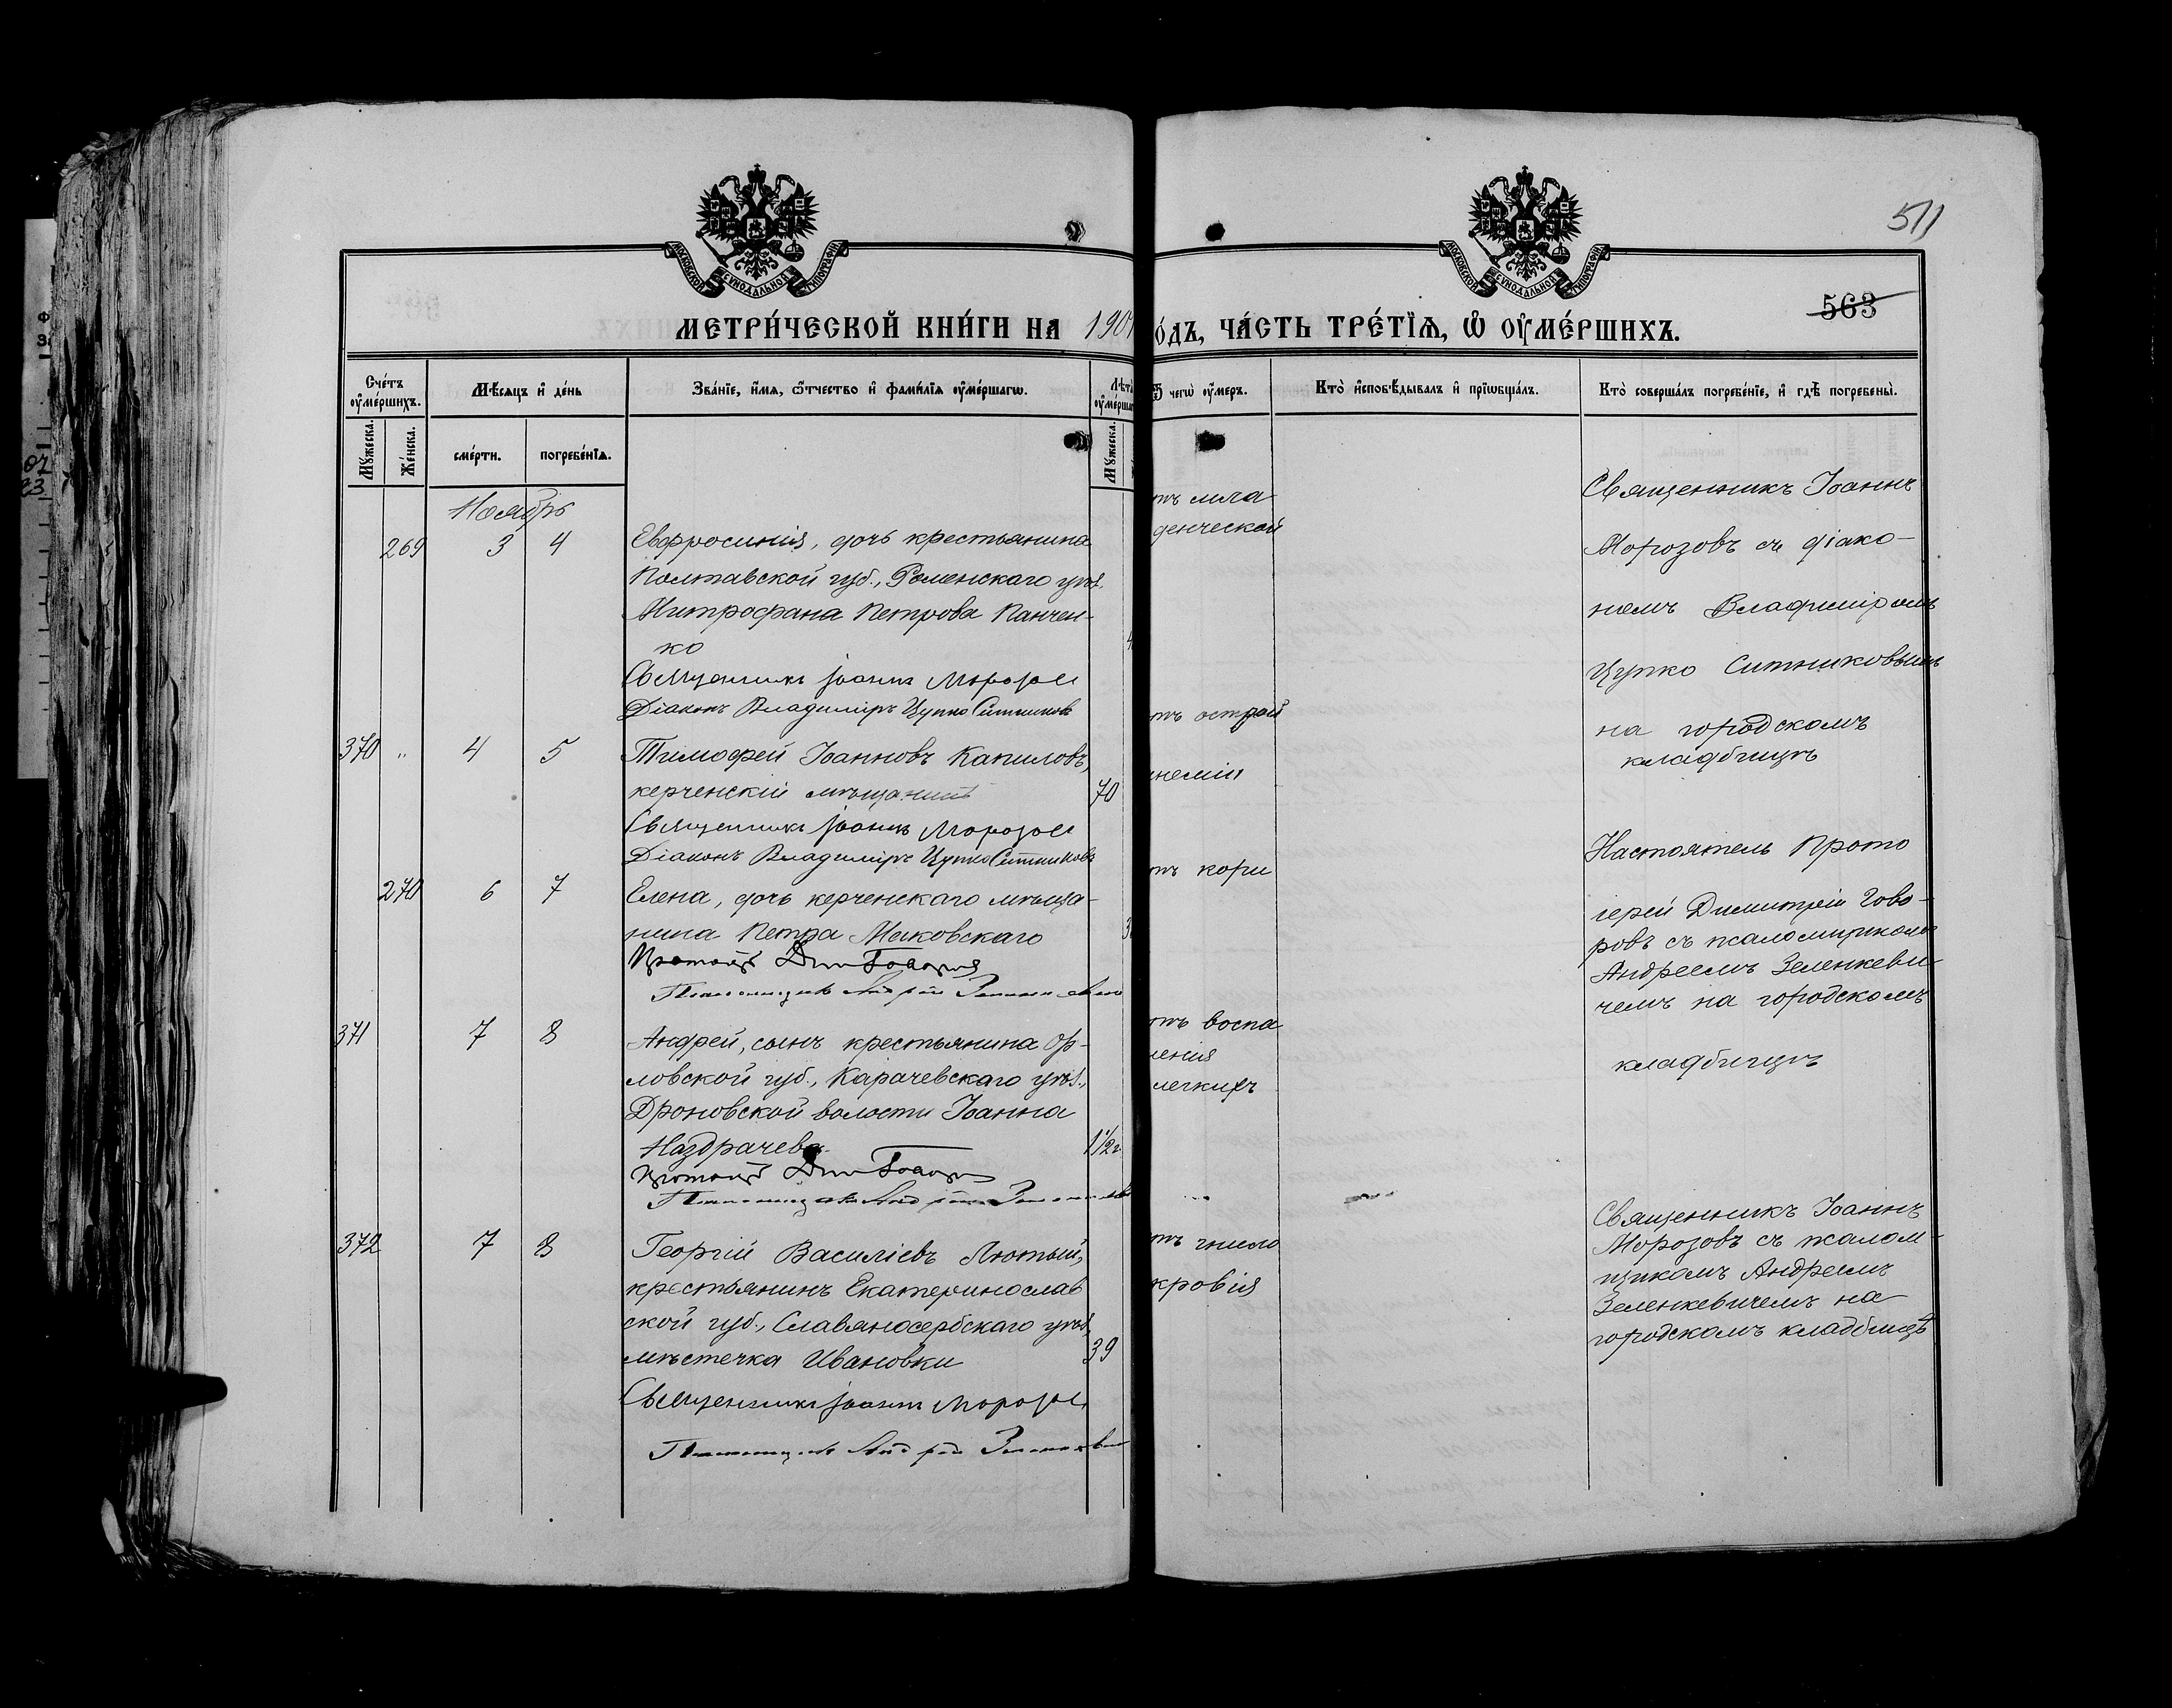 511
563
МЕТРИ́ЧЕСКОЙ КНИ́ГИ НА 1907
О́ДЪ, ЧА́СТЬ ТРЕ́ТЇѦ, Ѽ ОУ҆МЕ́РШИХЪ.
МОСКОВСКОЙ СѴНОДАЛЬНОЙ ТИПОГРАФІИ
МОСКОВСКОЙ СѴНОДАЛЬНОЙ ТИПОГРАФІИ
Сче́тъ оу҆ме́ршихъ.
Мѣ́сѧцъ и҆ де́нь
Зва́нїе, и҆́мѧ, ѻ҆́тчество и҆ фами́лїѧ оу҆ме́ршагѡ.
Лѣт
оу҆ме́ршаг
Ѿ чегѡ̀ оу҆́меръ.
Кто̀ и҆сповѣ́дывалъ и҆ прїѡбща́лъ.
Кто̀ соверша́лъ погребе́нїе, и҆ гдѣ̀ погребены̀.
Мꙋ́жеска.
Же́нска.
сме́рти.
погребе́нїѧ.
Мꙋ́жеска.
Ноябрь
269 3 4
Евфросинія, дочь крестьянина
Полтавской губ., Роменскаго уѣз.
Митрофана Петрова Панчен-
ко
Священникъ Іоаннъ Морозовъ
Діаконъ Владимиръ Цупко Ситниковъ
тъ мла-
денческой
Священникъ Іоаннъ
Морозовъ съ діако-
номъ Владиміромъ
Цупко Ситниковымъ
на городскомъ
кладбищѣ
370 " 4 5
Тимофей Іоанновъ Капиловъ,
керченскій мѣщанинъ
70
Священникъ Іоаннъ Морозовъ
Діаконъ Владимиръ Цупко Ситниковъ
тъ острой
неміи
270 6 7
Елена, дочь керченскаго мѣща-
нина Петра Маковскаго
Протоіер Дим Говоровъ
Псаломщикъ Андрей Зеленкевич
тъ кори
Настоятель Прото
іерей Димитрій Гово-
ровъ съ псаломщикомъ
Андреемъ Зеленкеви-
чемъ на городскомъ
кладбищѣ
371 7 8
Андрей, сынъ крестьянина Ор-
ловской губ., Карачевскаго уѣз.,
Дроновской волости Іоанна
Наздрачева
1 1/2 г.
Протоіер Дим Говоров
Псаломщикъ Андрей Зеленкевич
тъ воспа
ленія
легкихъ
372 7 8
Георгій Василіевъ Лютый,
крестьянинъ Екатеринослав
ской губ., Славяносербскаго уѣзд,
мѣстечка Ивановки
39
Священникъ Іоаннъ Морозов
Псаломщикъ Андрей Зеленкевич
тъ гнило
кровія
Священникъ Іоаннъ
Морозовъ съ псалом-
щикомъ Андреемъ
Зеленкевичемъ на
городскомъ кладбищѣ